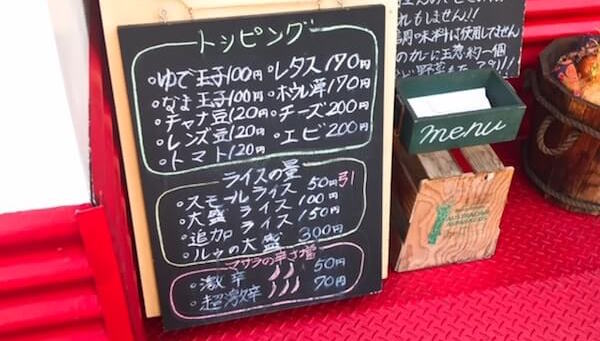 トッピング
・ゆで玉子100円 ・レタス170円
・なま玉子100円 ・ホウレン草170円
・チャナ豆120円 ・チーズ200円
・レンズ豆120円 ・エビ200円
・トマト120円
ライスの量
・スモールライス 50円引
・大盛ライス 100円
・追加ライス 150円
・ルゥの大盛 300円
マサラの辛さ増
・激辛 50円
・超激辛 70円
れもません!!
味料は使用してません
のカレーに玉葱約一個
menu